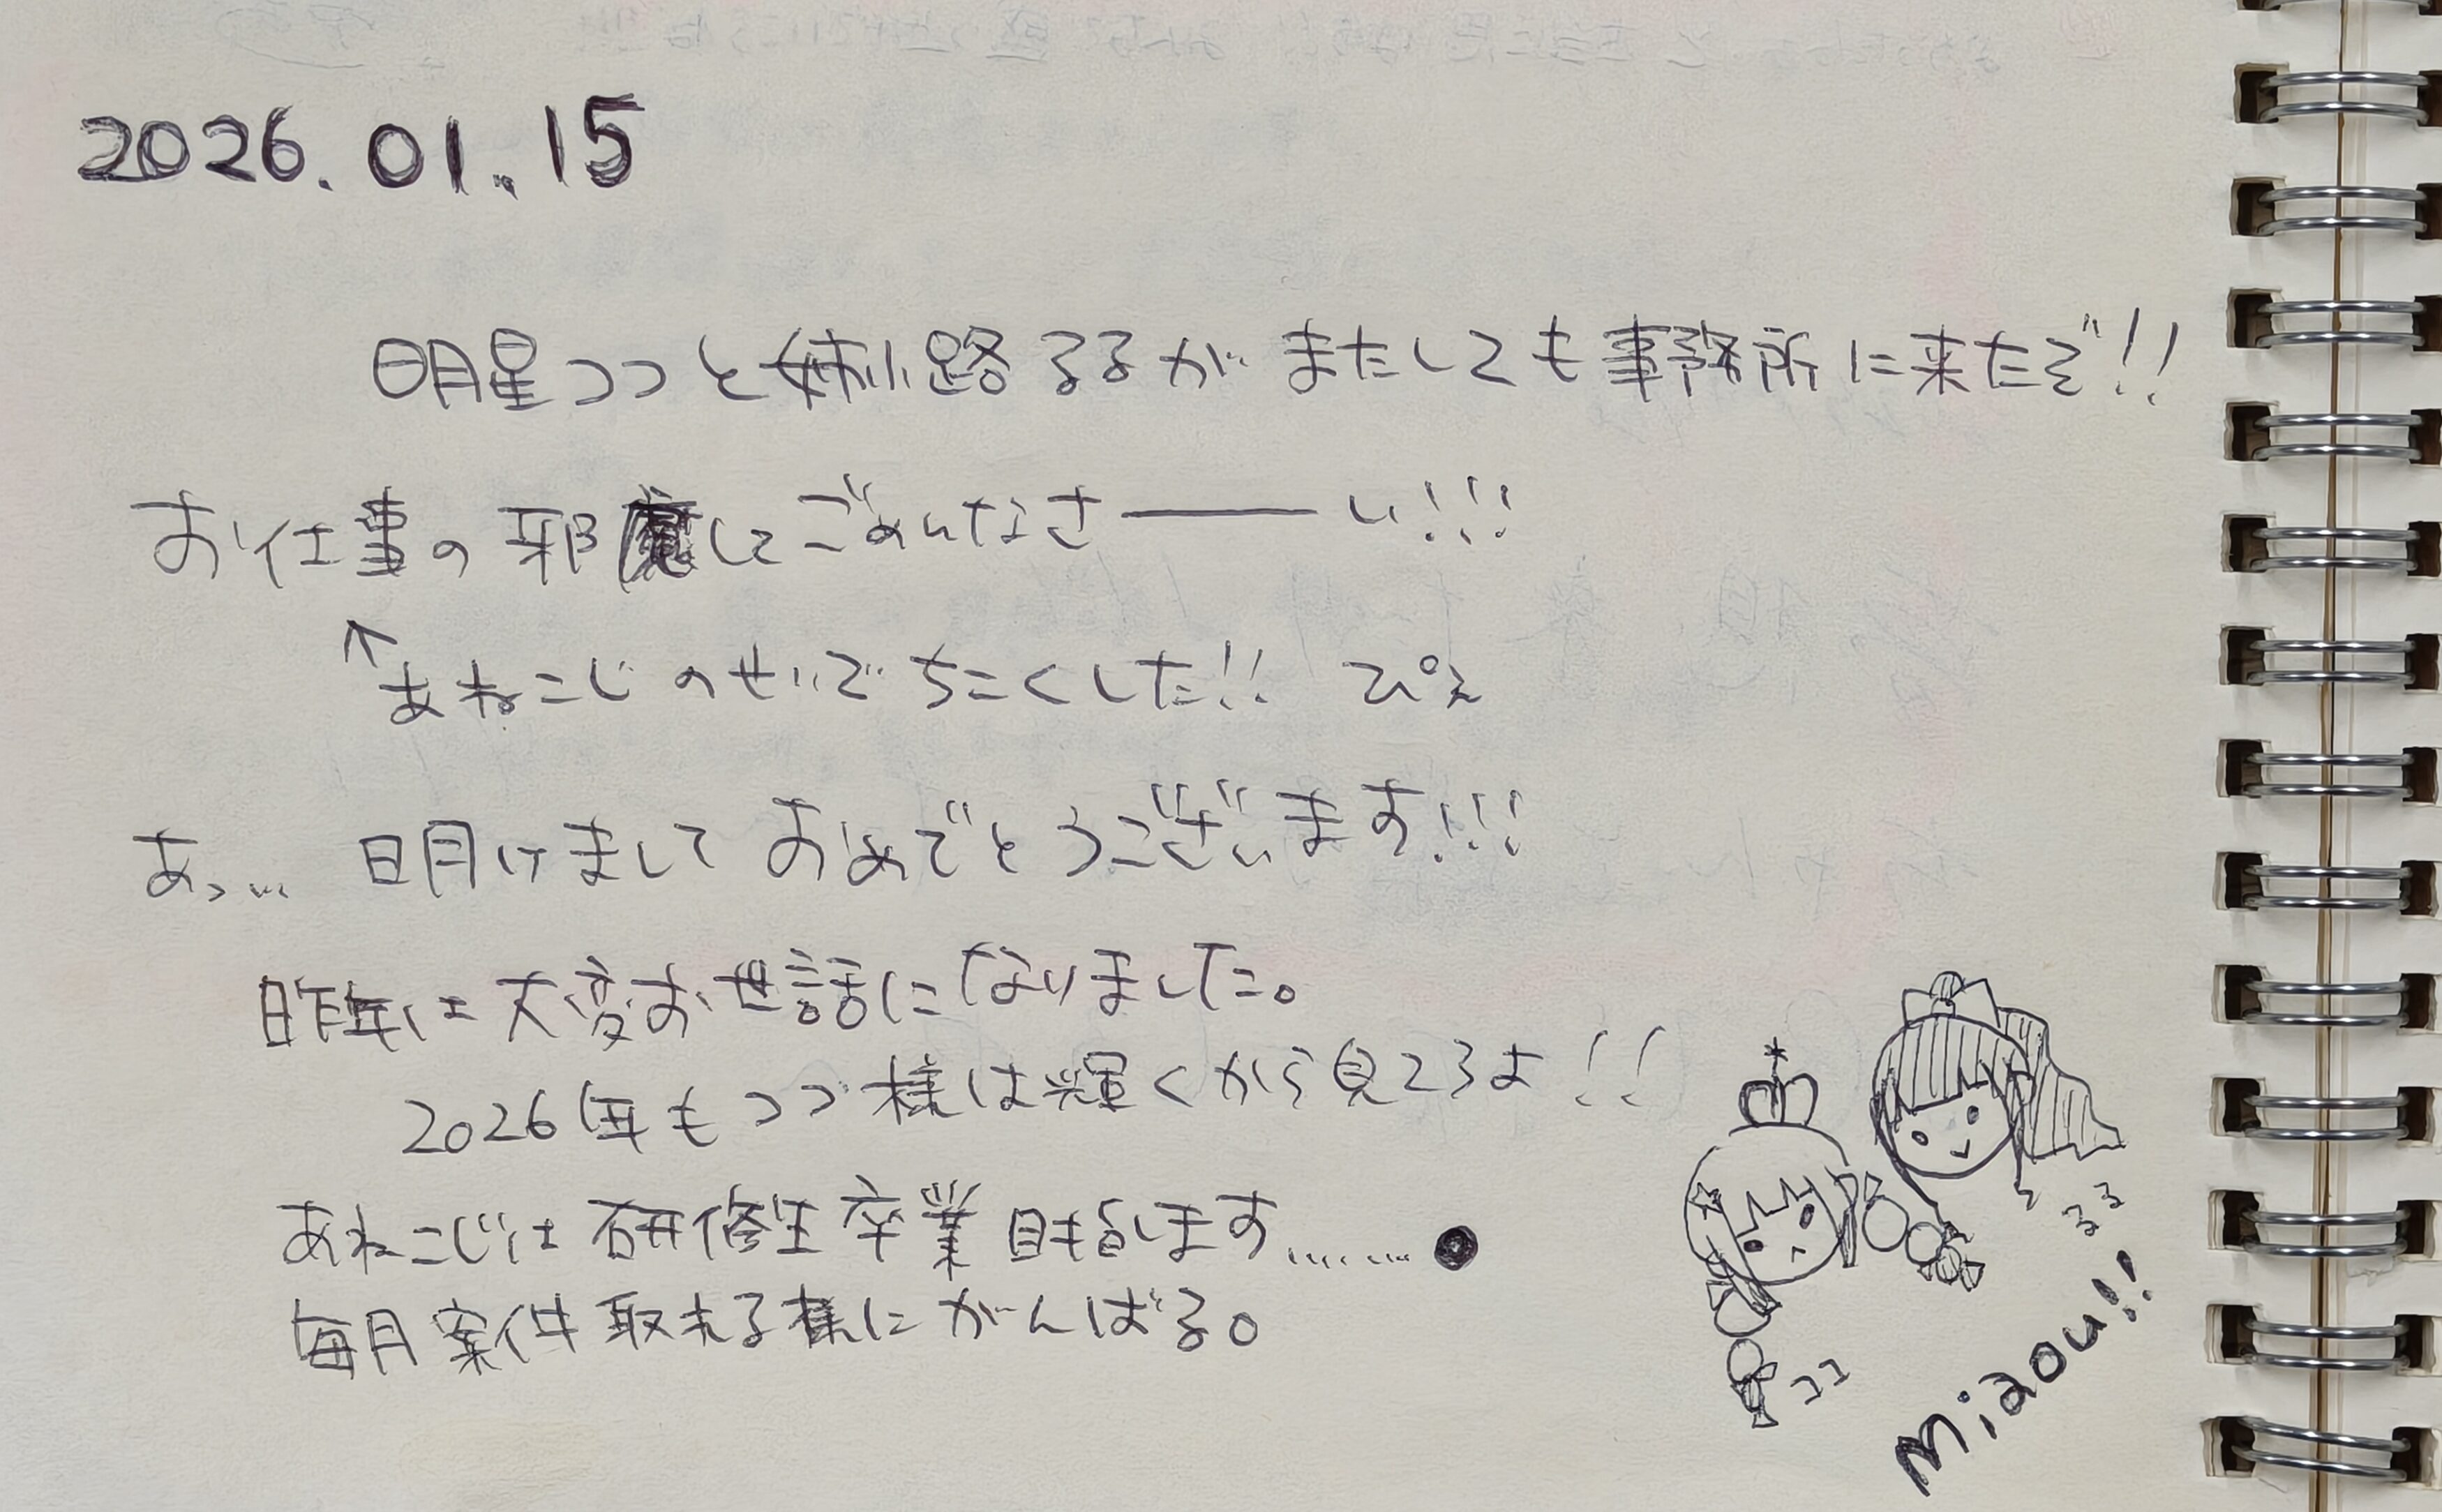 2026.01.15
明星つつと姉小路るるがまたしても事務所に来たぞ!!
お仕事の邪魔してごめんなさーーい!!!
↑あねこじのせいでちこくした!! ぴえ
あっ… 明けましておめでとうございます!!!
昨年は大変お世話になりました。
2026年もつつ様は輝くから見ろよ!!
あねこじは研修生卒業目指します………●
毎月案件取れる様にがんばる。
るる
ココ
miaou!!